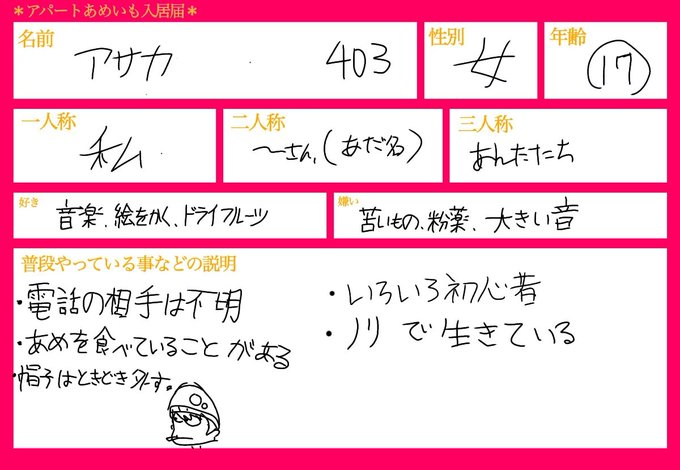 ＊アパートあめいも入居届＊
名前
アサカ 403
性別
女
年齢
17
一人称
私
二人称
〜さん、(あだ名)
三人称
あんたたち
好き
音楽、絵をかく、ドライフルーツ
嫌い
苦いもの、粉薬、大きい音
普段やっている事などの説明
・電話の相手は不明
・あめを食べていることがある
・帽子はときどき外す。
・いろいろ初心者
・ノリで生きている